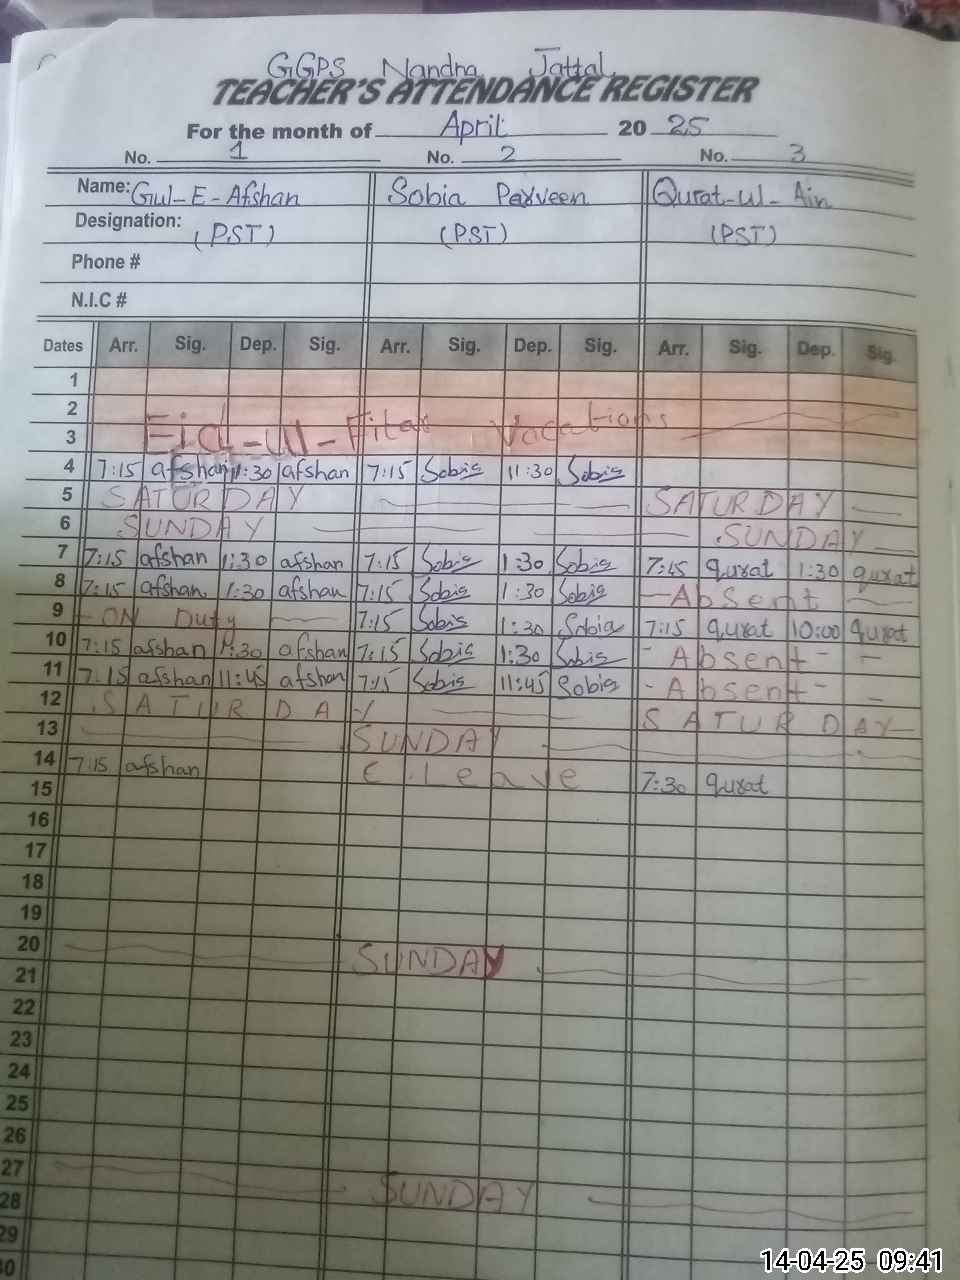 GGPS Nandna Jattal
TEACHER'S ATTENDANCE REGISTER
For the month of April 20 25
No. 1 No. 2 No. 3
Name: Gul-E-Afshan Sobia Parveen Qurat-ul-Ain
Designation: (PST) (PST) (PST)
Phone #
N.I.C #
Dates Arr. Sig. Dep. Sig. Arr. Sig. Dep. Sig. Arr. Sig. Dep. Sig.
1
2
3 Eid-ul-Fitar Vacations
4 7:15 afshan 11:30 afshan 7:15 Sobia 11:30 Sobia
5 SATURDAY SATURDAY
6 SUNDAY SUNDAY
7 7:15 afshan 1:30 afshan 7:15 Sobia 1:30 Sobia 7:45 qurat 1:30 qurat
8 7:15 afshan 1:30 afshan 7:15 Sobia 1:30 Sobia Absent
9 ON Duty 7:15 Sobia 1:30 Sobia 7:15 qurat 10:00 qurat
10 7:15 afshan 1:30 afshan 7:15 Sobia 1:30 Sobia Absent
11 7:15 afshan 11:45 afshan 7:15 Sobia 11:45 Sobia Absent
12 SATURDAY SATURDAY
13 SUNDAY
14 7:15 afshan C.Leave 7:30 qurat
15
16
17
18
19
20 SUNDAY
21
22
23
24
25
26
27 SUNDAY
28
29
30
14-04-25 09:41